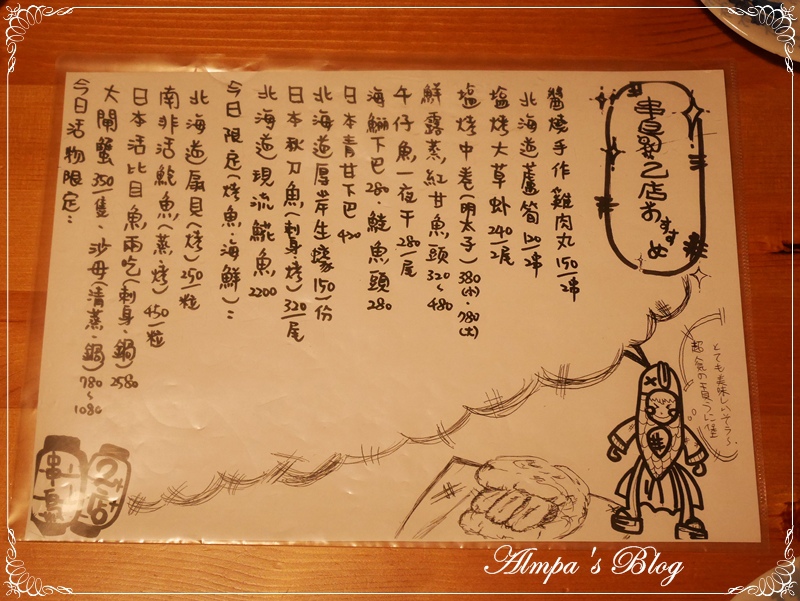 串鳥弐乙店おすすめ
醬燒手作雞肉丸 150/串
北海道蘆筍 120/串
塩烤大草蝦 240/尾
塩烤中卷(明太子) 380(小)・780(大)
鮮露蒸紅甘魚頭 320~480
午仔魚一夜干 280/尾
海鱺下巴 280・鮭魚頭 280
日本青甘下巴 420
北海道厚岸生蠔 150/份
日本秋刀魚(刺身・烤) 320/尾
北海道現流鯱魚 2200
今日限定(烤魚・海鮮)::
北海道扇貝(烤) 250/粒
南非活鮑魚(蒸・烤) 450/粒
日本活比目魚兩吃(刺身・鍋) 2580
大閘蟹 350/隻・沙母(清蒸・鍋) 780~1080
今日活物限定::
とても美味しいそう~
串鳥
Almpa's Blog